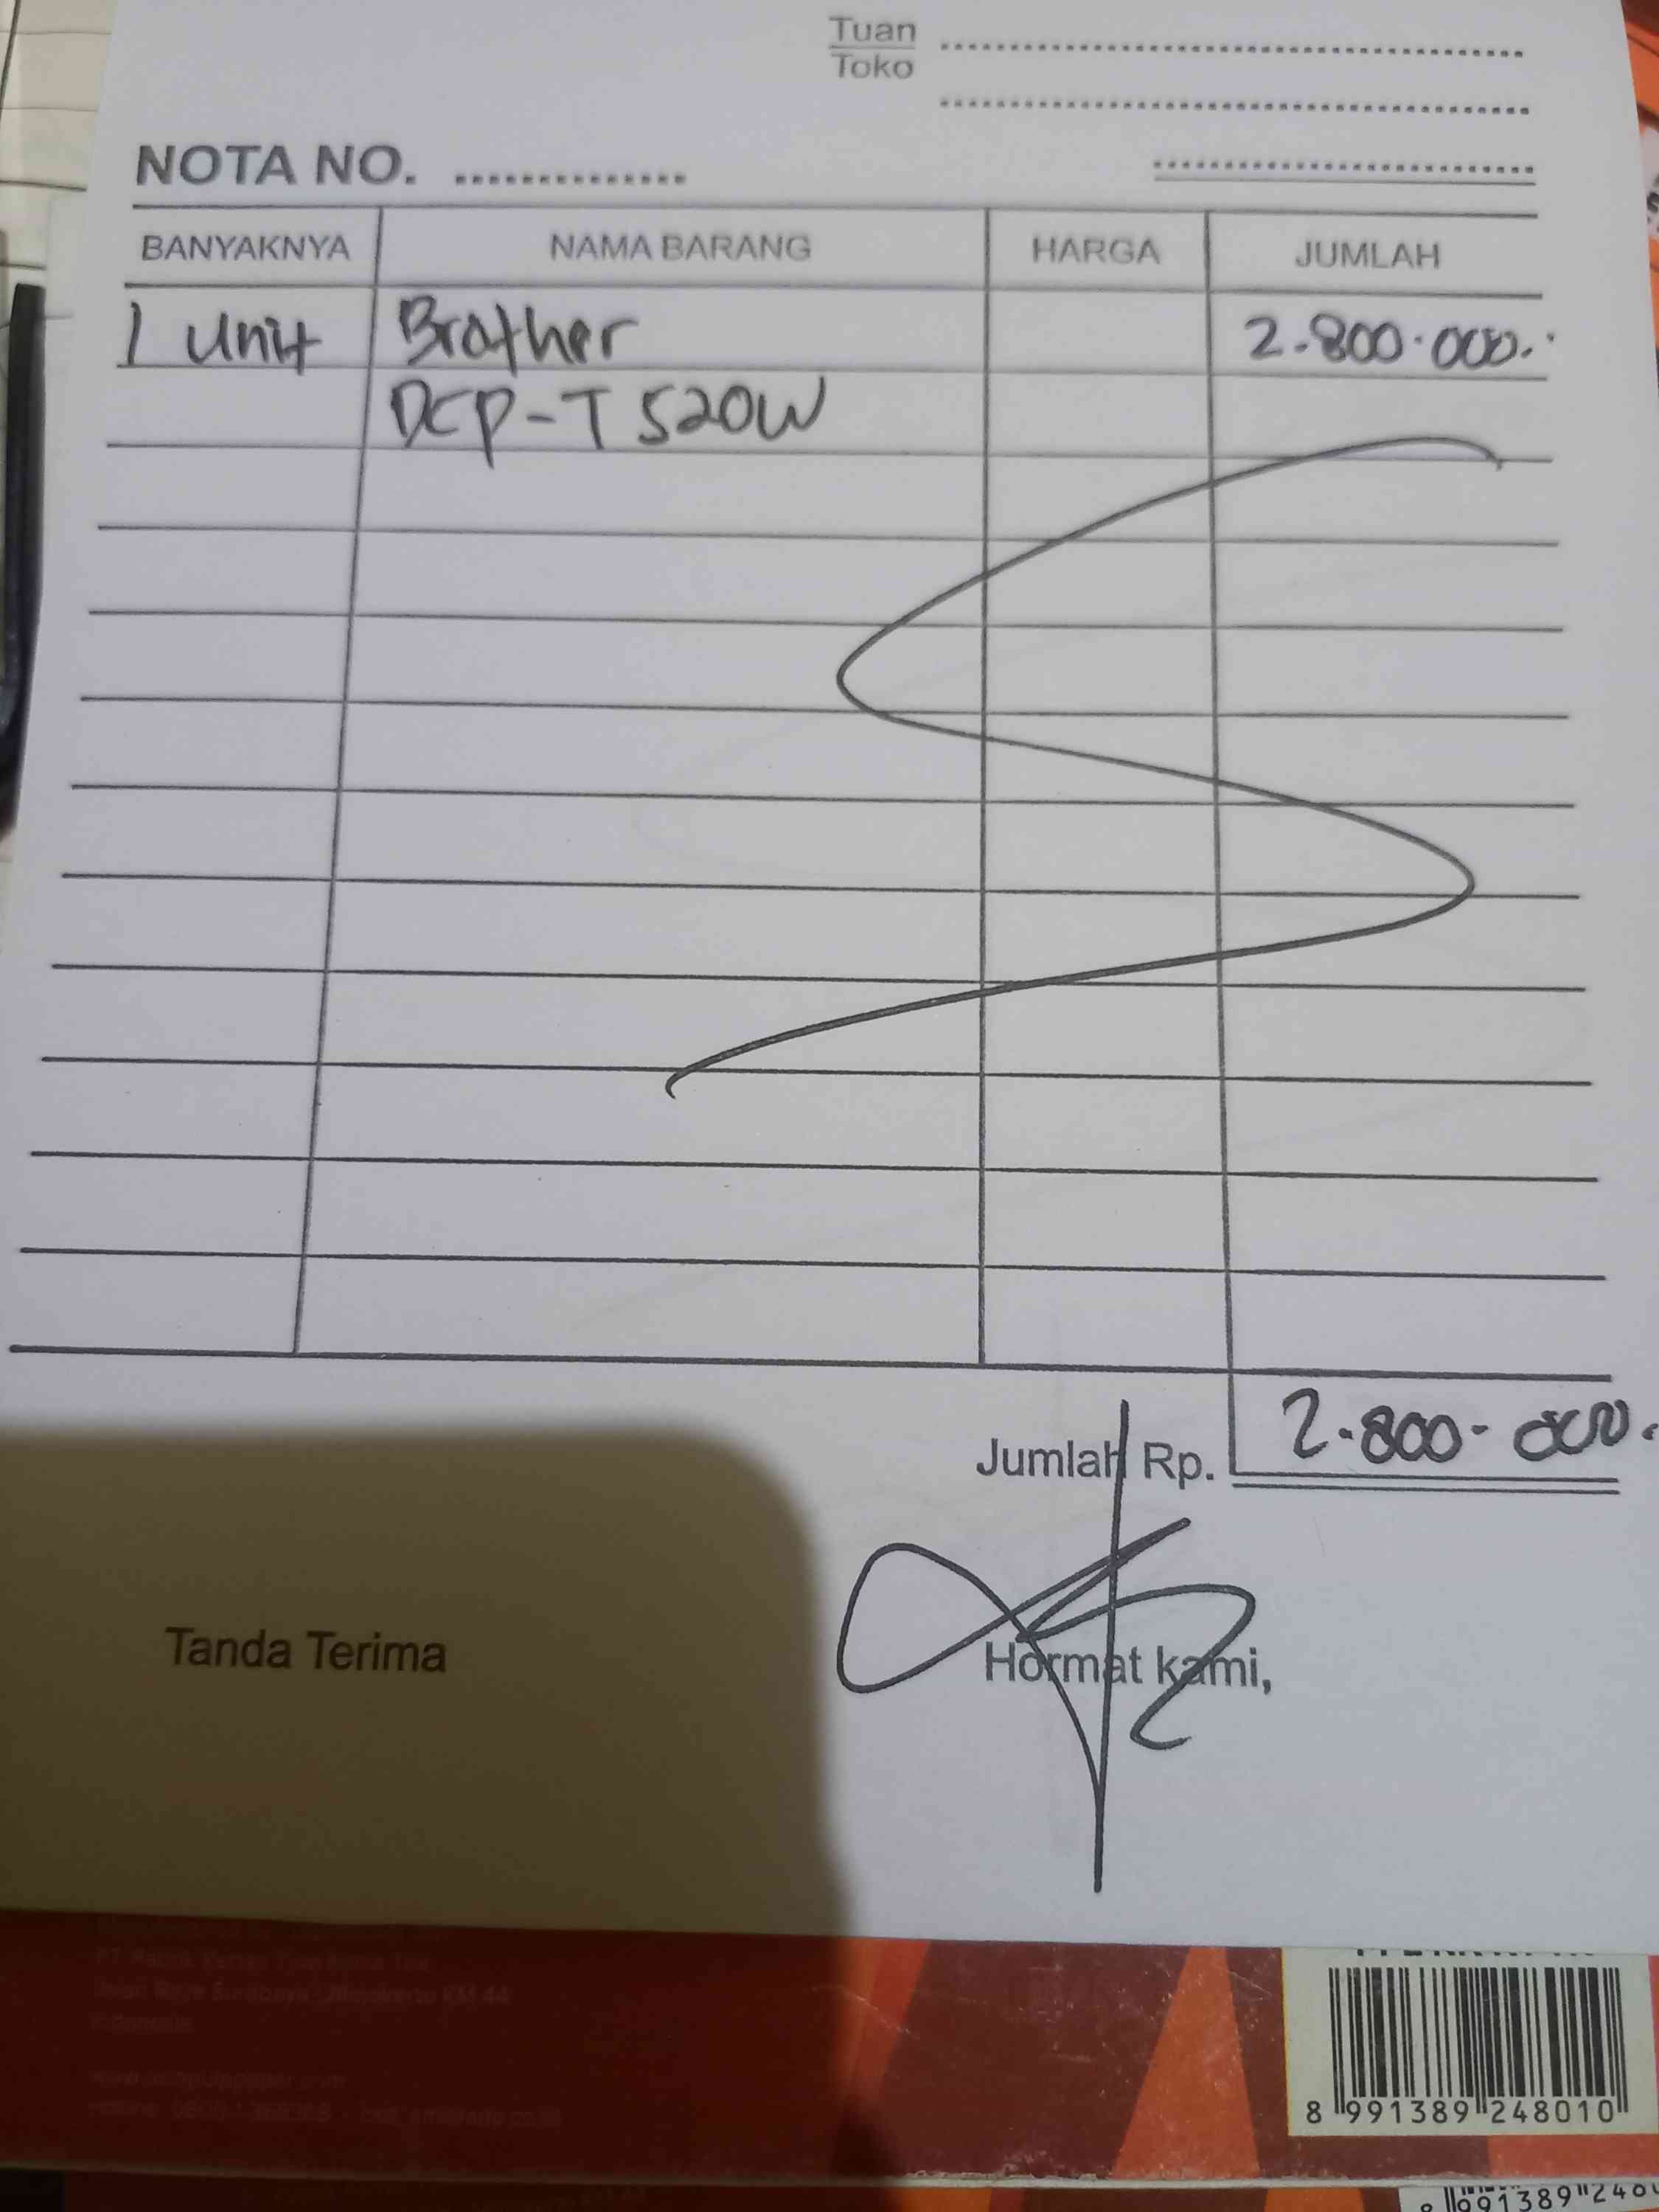 Tuan
Toko
NOTA NO.
BANYAKNYA NAMA BARANG HARGA JUMLAH
1 Unit Brother 2.800.000.
DCP-T520W
Jumlah Rp. 2.800.000.
Tanda Terima
Hormat kami,
8 991389 248010